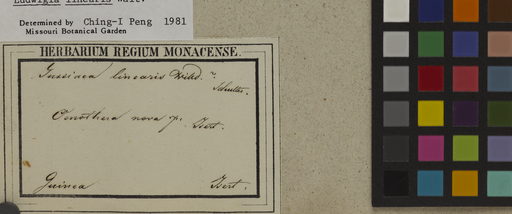 Ludwigia linearis Walt.
Determined by Ching-I Peng 1981
Missouri Botanical Garden
HERBARIUM REGIUM MONACENSE.
Jussiaea linearis Willd.
Schultes.
Oenothera nova sp. Isert.
Guinea Isert.